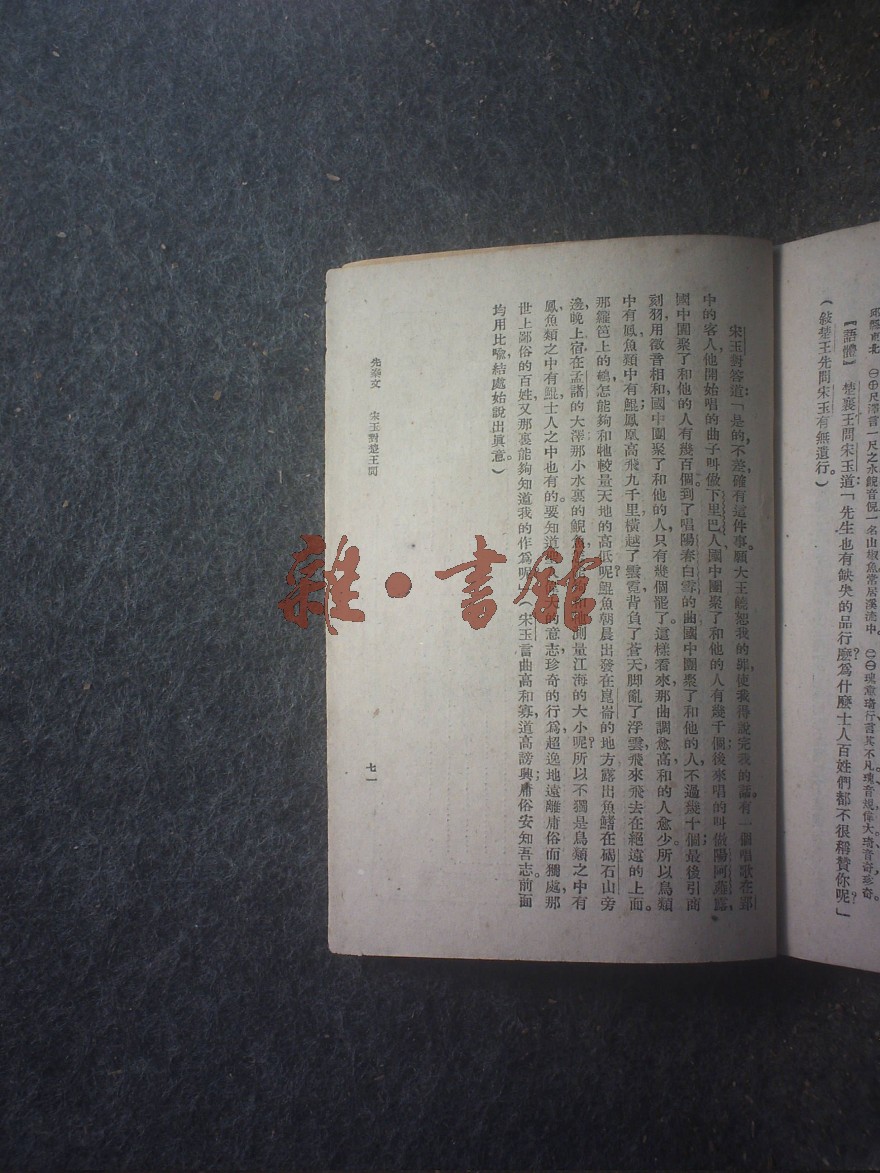 ㊉尺澤言一尺之水鯢音倪一名山椒魚常居溪流中。
瑰意琦行言其不凡瑰音規偉大琦音奇珍奇。
【語體】楚襄王問宋玉道：「先生也有缺失的品行麽？爲什麽士人百姓們都不很稱贊你呢？」
（敍楚王先問宋玉有無遺行。）
宋玉對答道：「是的，不差，確有這件事。願大王饒恕我的罪，使我得說完我的話。有一個唱歌在郢
中的客人，他開始唱的曲子叫做下里巴人，國中團聚了和他的人有幾千個；後來唱的叫做陽阿薤露，
國中團聚了和他的人有幾百個。到了唱陽春白雪的曲，國中團聚了和他的人，不過幾十個；最後引商
刻羽，用徵音相和，國中團聚了和他的人，只有幾個罷了。這樣看來，那曲調愈高，和的人愈少。所以鳥類
中有鳳，魚類中有鯤；鳳凰高飛九千里，橫越了雲霓，背負了蒼天，脚亂了浮雲，飛來飛去在絕遠的上面。
那籬笆上的鷃，怎能夠和牠較量天地的高低呢？鯤魚朝晨出發在崑崙的地方，露出魚鰭在碣石山旁
邊，晚上宿在孟諸的大澤，那小水裏的鯢魚，測量江海的大小呢？所以不獨是鳥類之中有
鳳，魚類之中有鯤，士人之中也有的。要知道的意志，珍奇的行爲，超逸地遠離庸俗而獨處；那
世上鄙俗的百姓，又那裏能夠知道我的作爲呢」（宋玉言曲高和寡，道高謗興，庸俗安知吾志。前面
均用比喩，結處始說出眞意。）
先秦文　宋玉對楚王問　七一
雜·書館